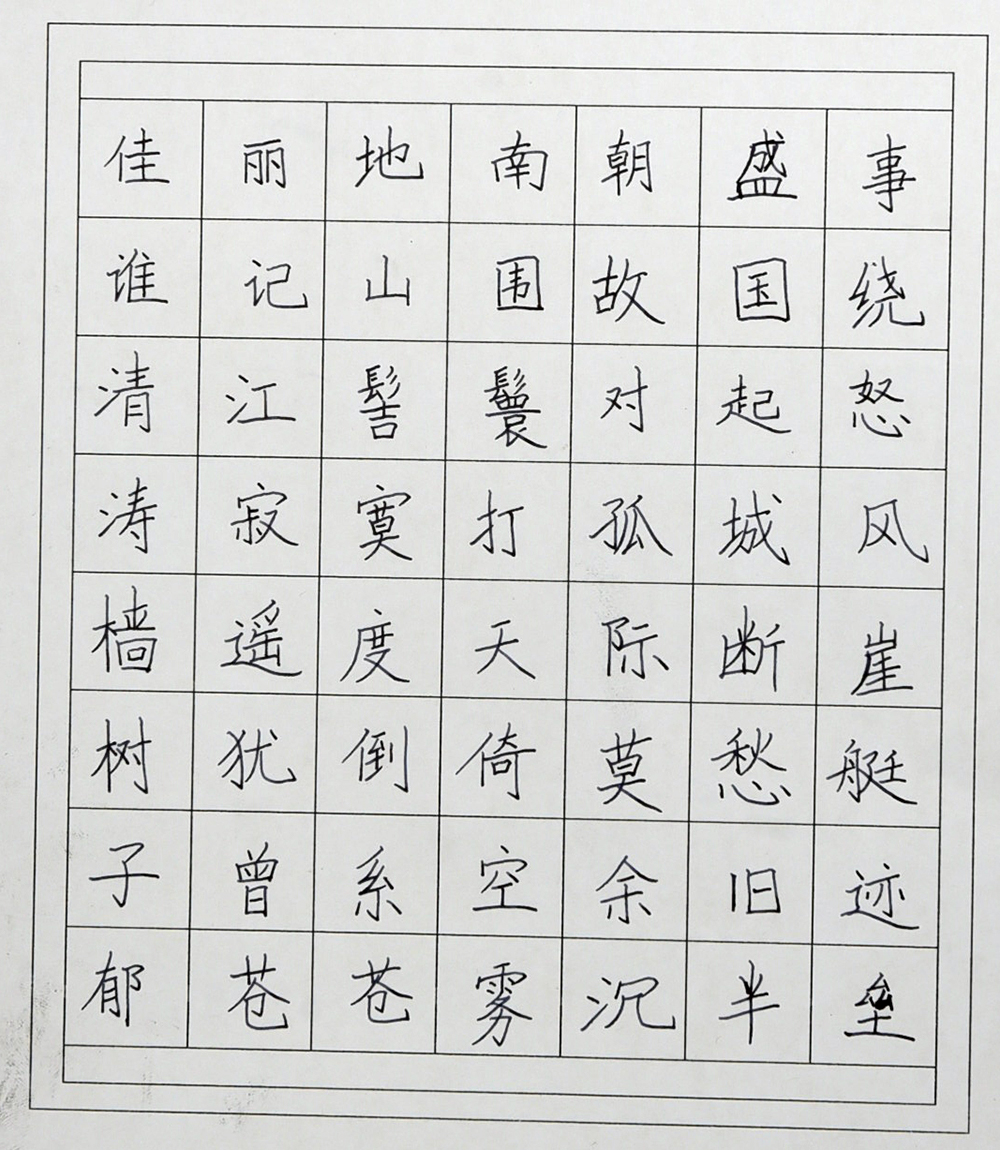 佳丽地南朝盛事
谁记山围故国绕
清江髻鬟对起怒
涛寂寞打孤城风
樯遥度天际断崖
树犹倒倚莫愁艇
子曾系空余旧迹
郁苍苍雾沉半垒